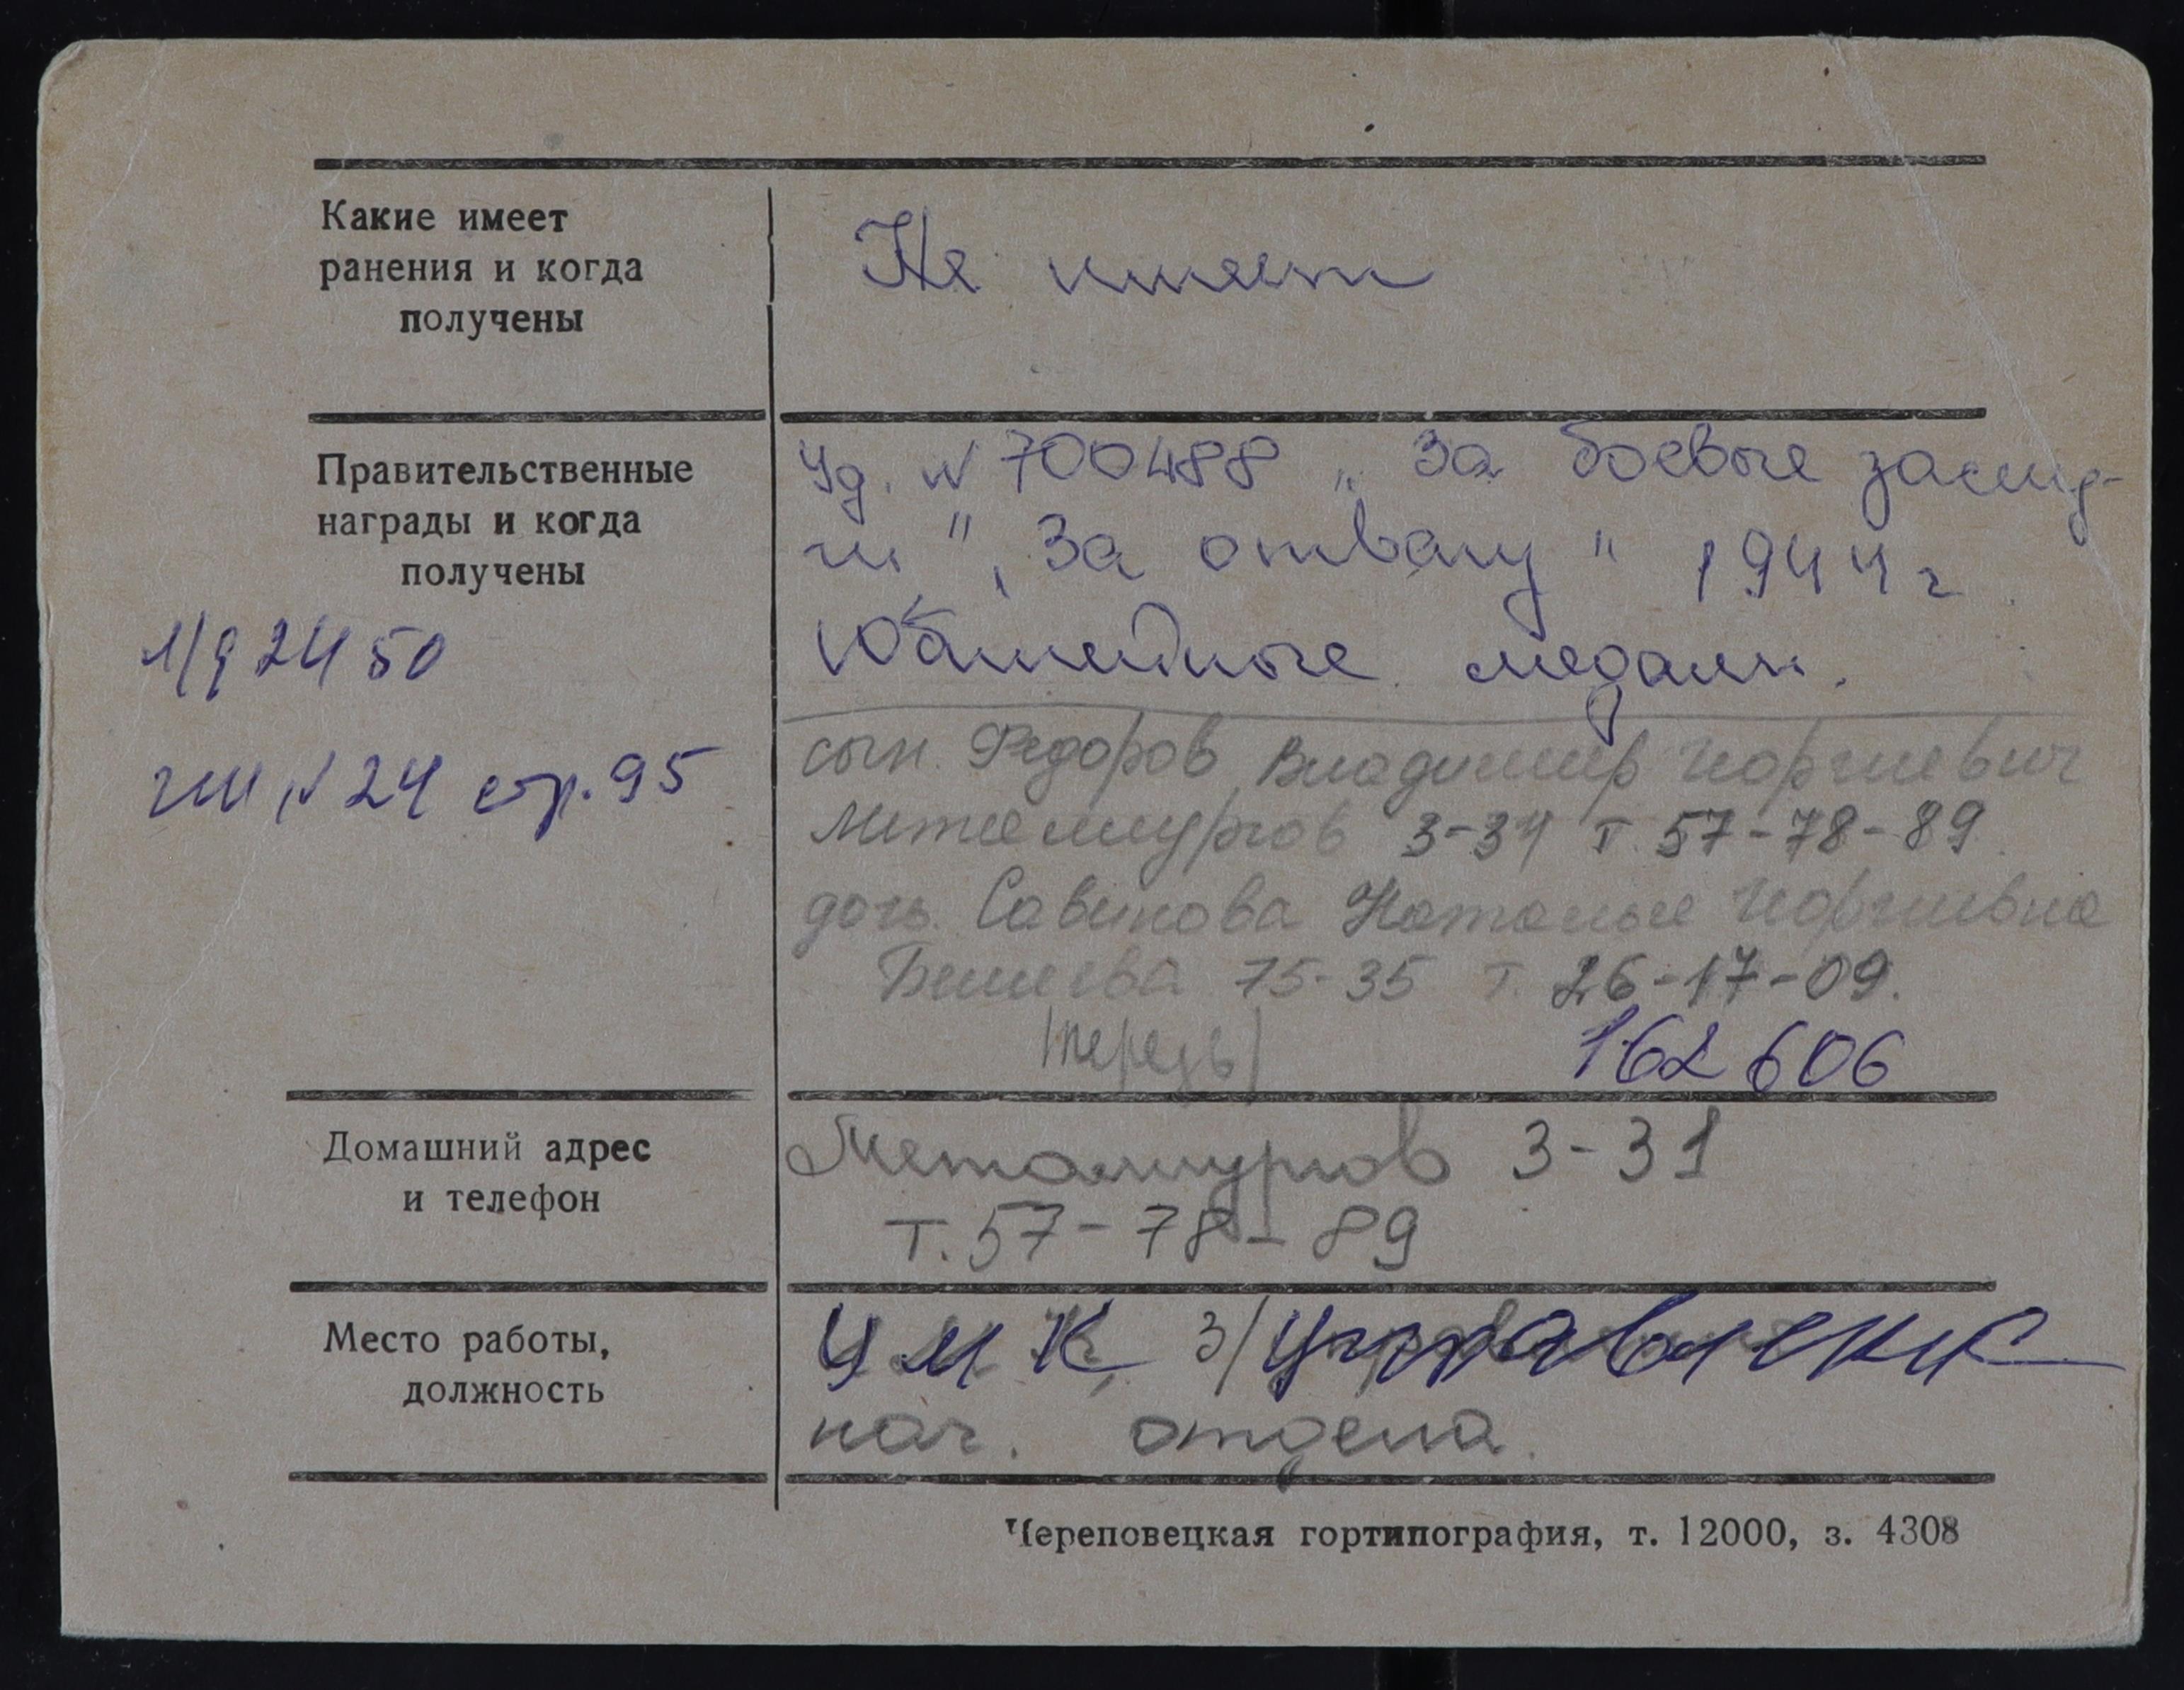 Какие имеет
ранения и когда
получены
Не имеет
Правительственные
награды и когда
получены
Уд. № 700488 „За боевые заслу-
ги", За отвагу" 1944 г
Юбилейные медали.
л/д 2450
гш № 24 стр. 95
сын. Федоров Владимир Георгиевич
Металлургов 3-34 т. 57-78-89
дочь. Савинова Наталья Георгиевна
75-35 т. 26-17-09.
162 606
Домашний адрес
и телефон
Металлургов 3-31
т. 57-78-89
Место работы,
должность
ЧМК, з/управление
нач. отдела.
Череповецкая гортипография, т. 12000, з. 4308